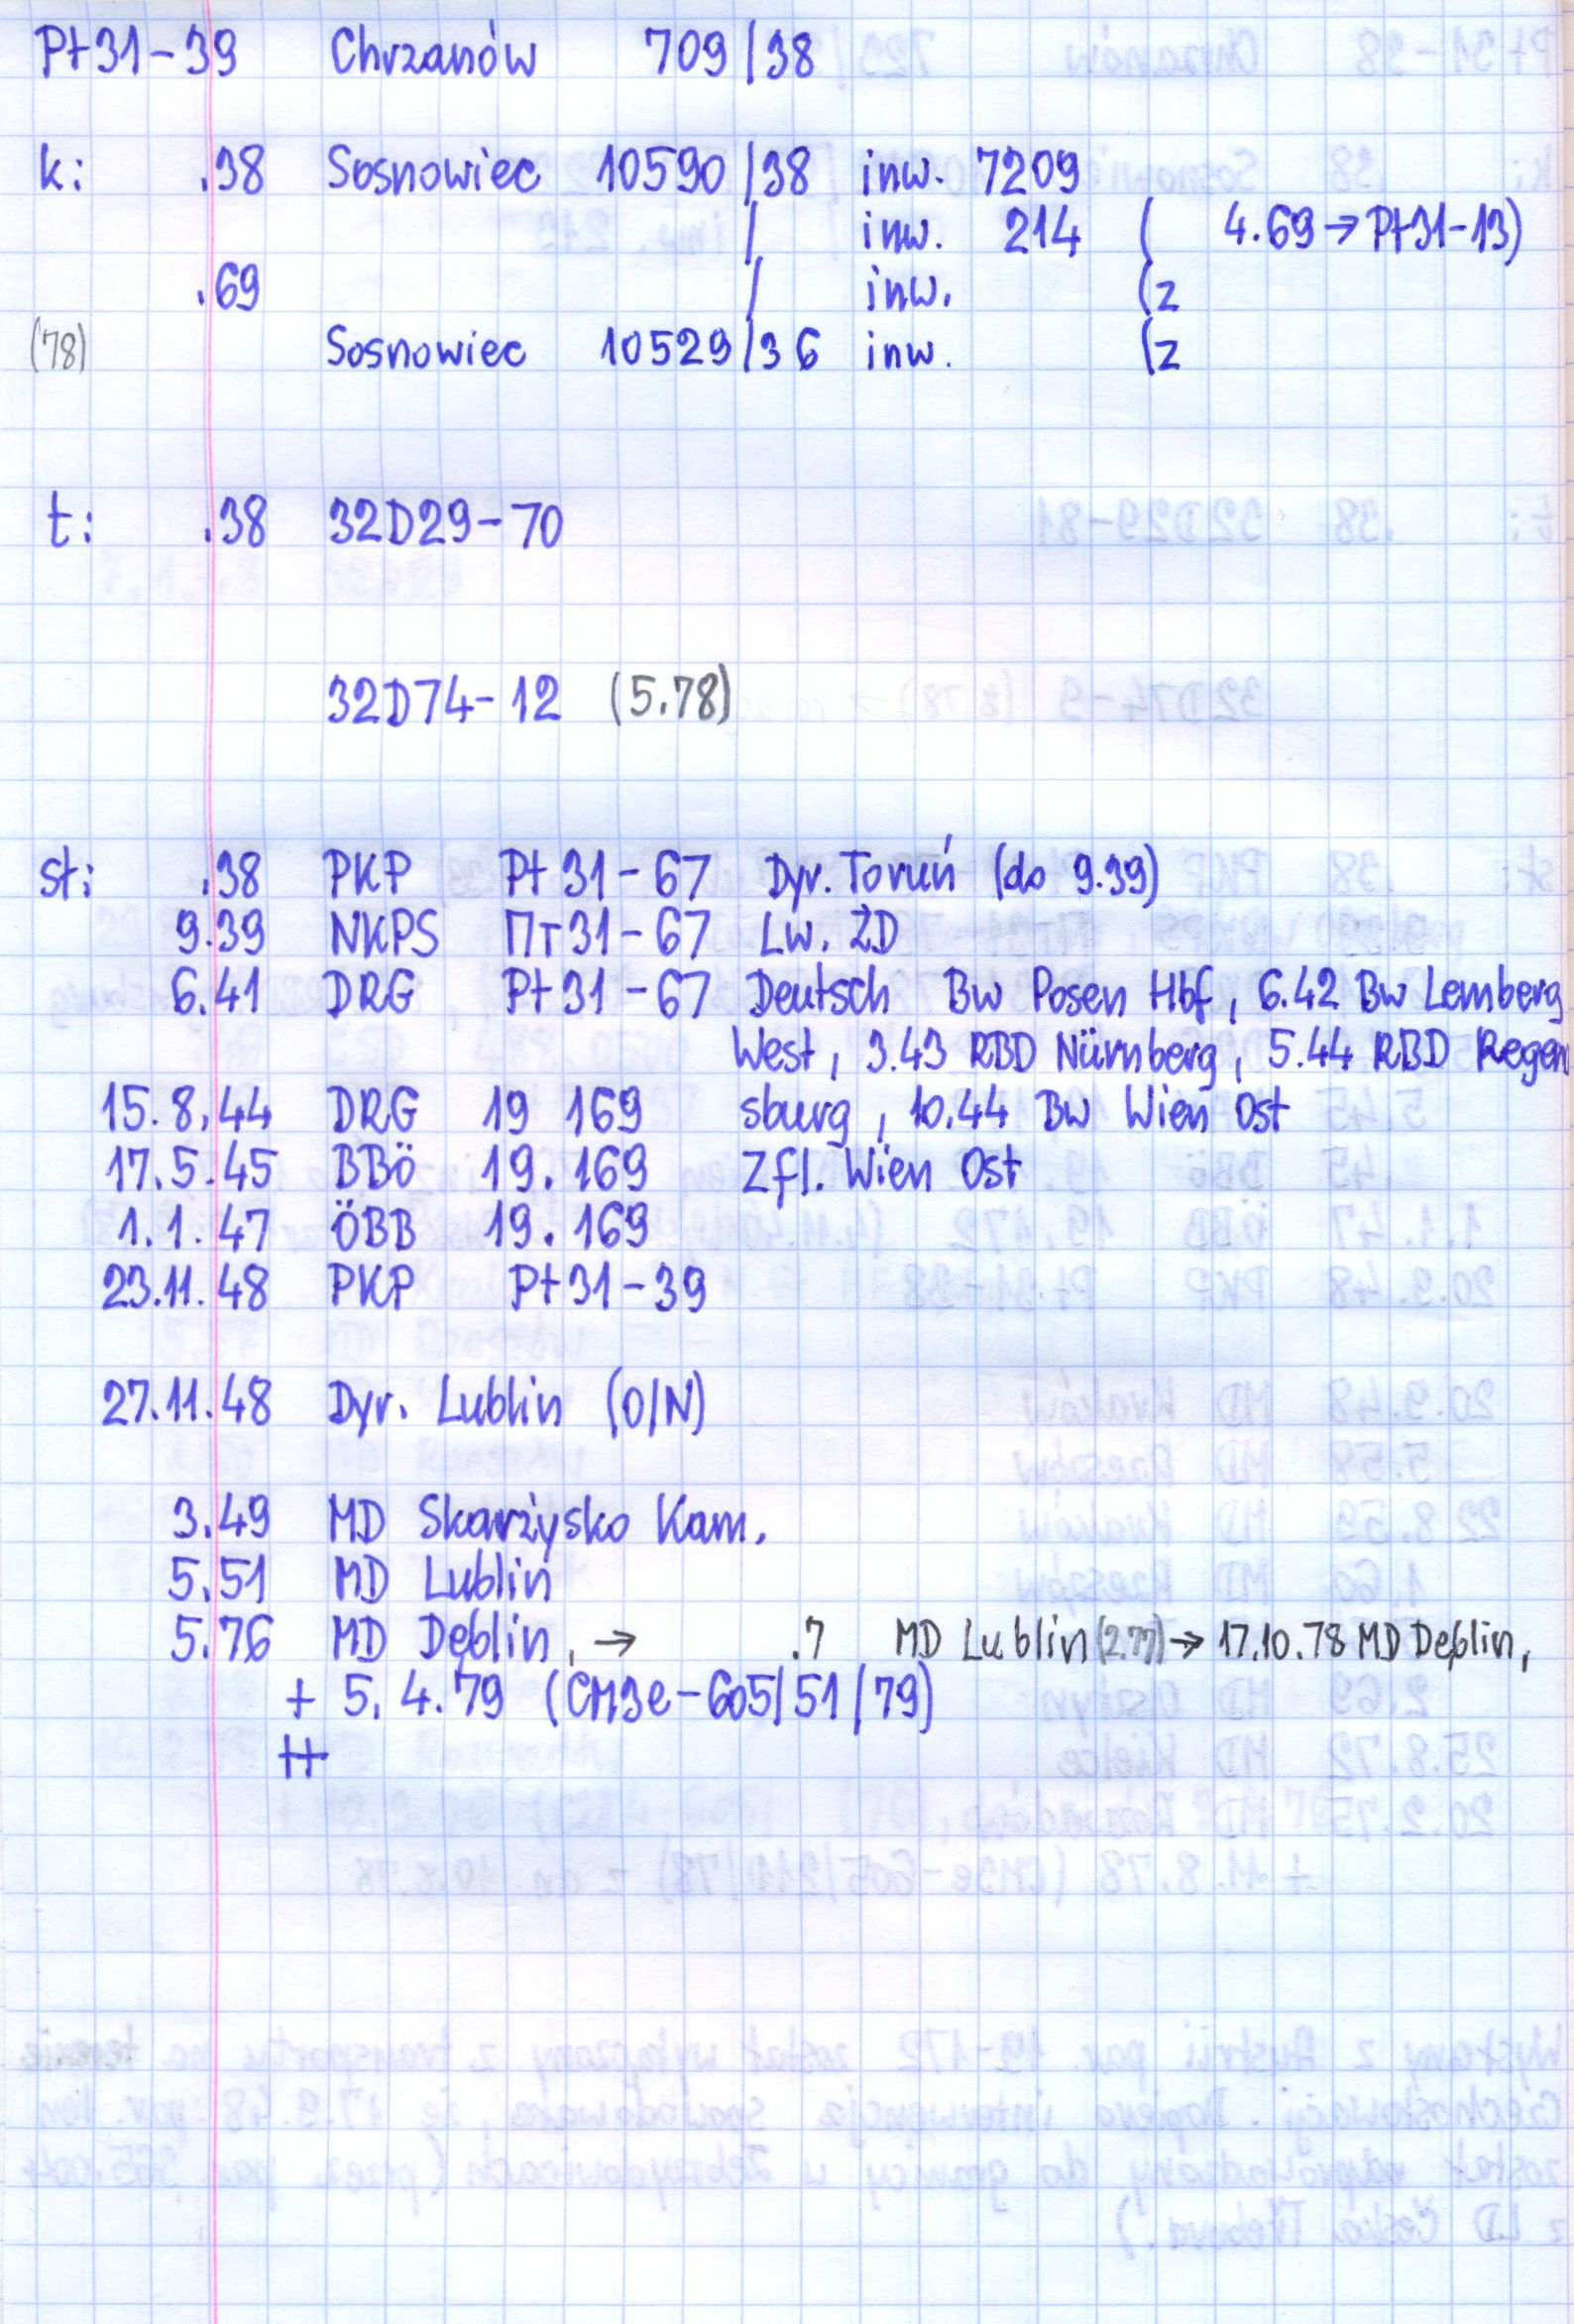 Pt31-39 Chrzanów 709/38
k: .38 Sosnowiec 10590/38 inw. 7209
/ inw. 214 ( 4.69→Pt31-13)
.69 / inw. (z
(78) Sosnowiec 10529/36 inw. (z
t: .38 32D29-70
32D74-12 (5.78)
st: .38 PKP Pt31-67 Dyr. Toruń (do 9.39)
9.39 NKPS Пт31-67 Lw. ŻD
6.41 DRG Pt31-67 Deutsch Bw Posen Hbf, 6.42 Bw Lemberg
West, 3.43 RBD Nürnberg, 5.44 RBD Regen
15.8.44 DRG 19 169 sburg, 10.44 Bw Wien Ost
17.5.45 BBÖ 19.169 Zfl. Wien Ost
1.1.47 ÖBB 19.169
23.11.48 PKP Pt31-39
27.11.48 Dyr. Lublin (O/N)
3.49 MD Skarżysko Kam.
5.51 MD Lublin
5.76 MD Dęblin, → .7 MD Lublin (2.77) → 17.10.78 MD Dęblin,
+ 5.4.79 (CM3e-605/51/79)
++